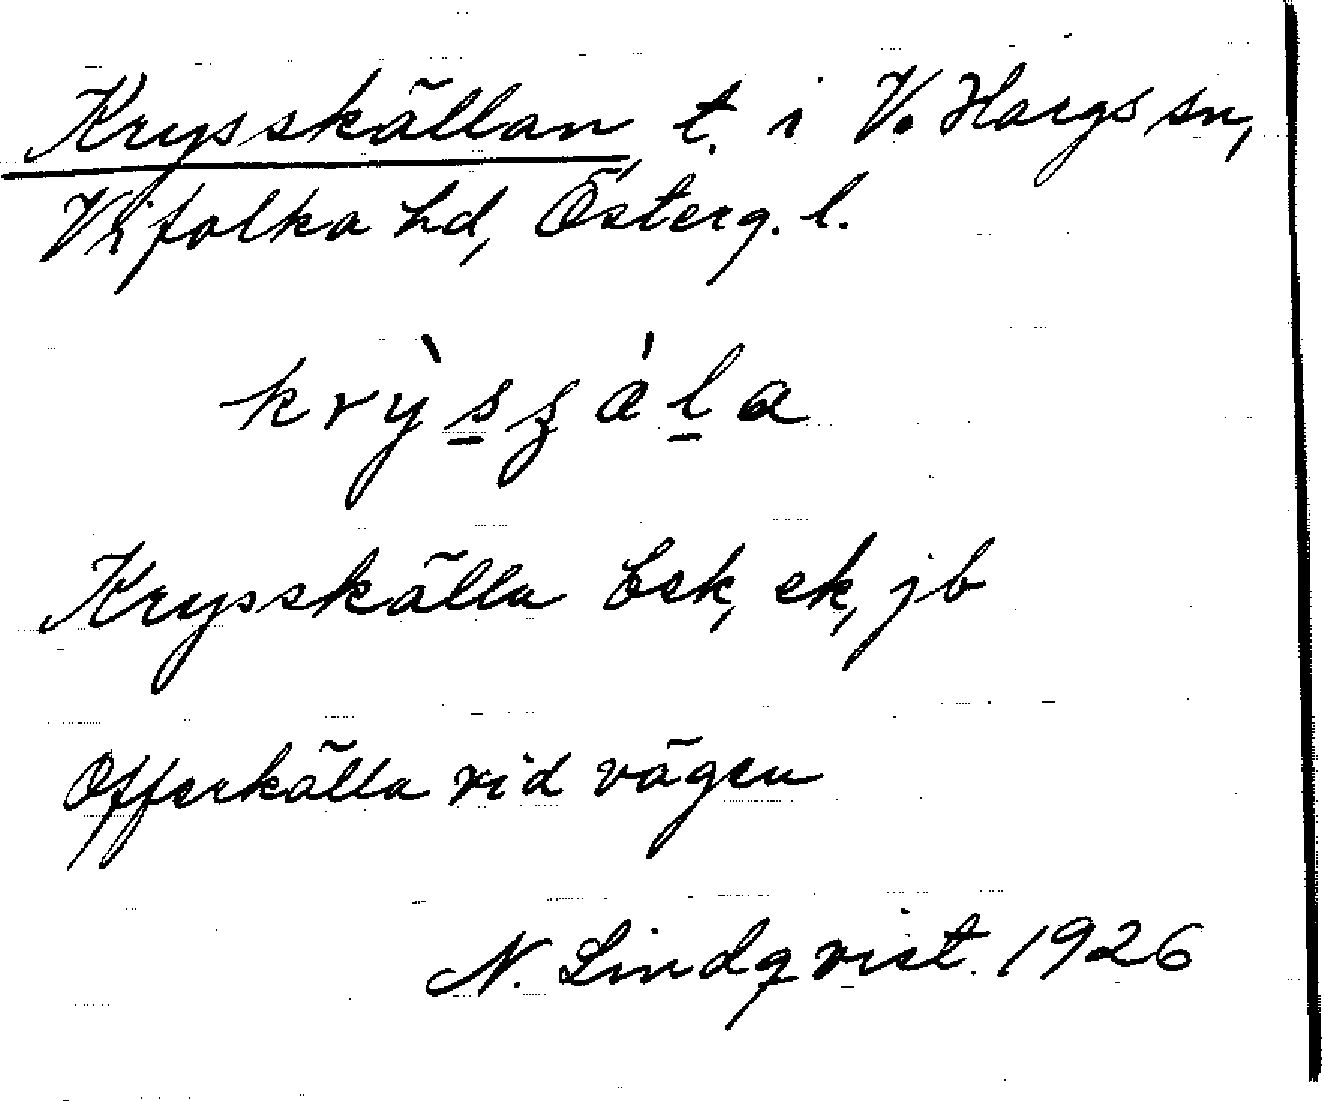 Krysskällan, t. i V. Hargs sn,
Vifolka hd, Österg. l.
Krysskälla Esk, ek, jb
Offerkälla vid vägen
N. Lindqvist. 1926